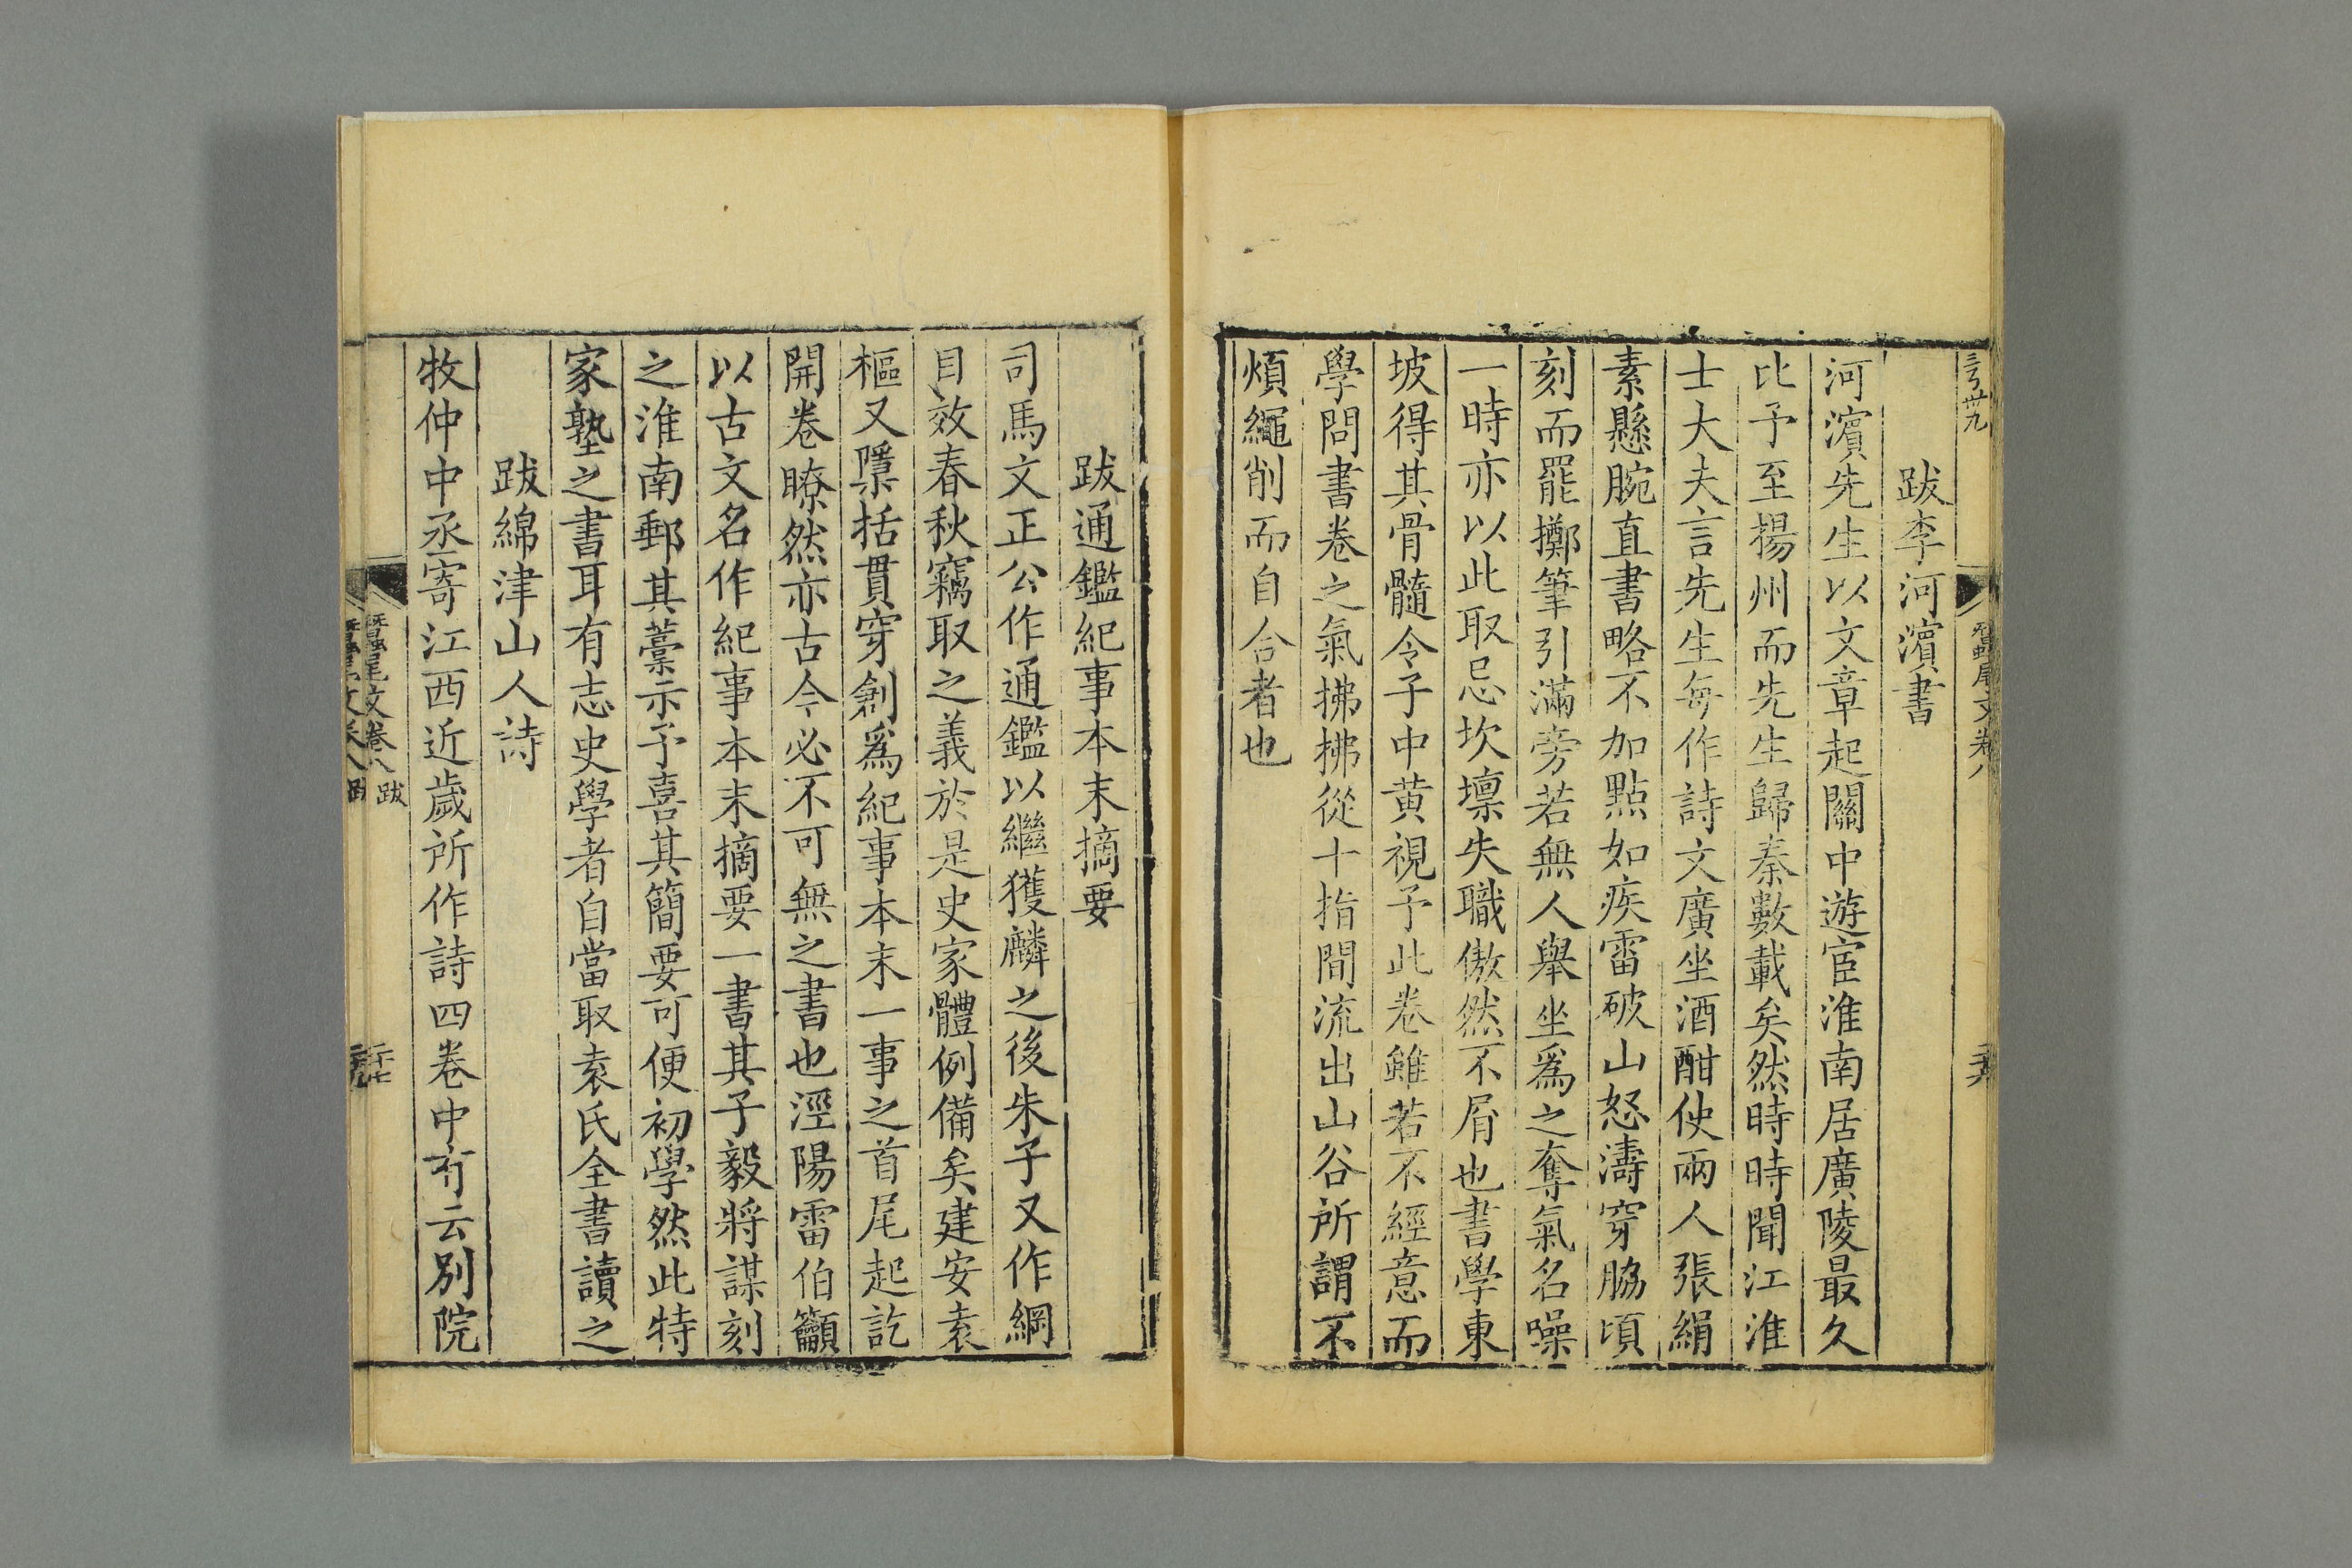 跋李河濱書
河濱先生以文章起關中遊宦淮南居廣陵最久
比予至揚州而先生歸秦數載矣然時時聞江淮
士大夫言先生每作詩文廣坐酒酣使兩人張絹
素懸腕直書略不加點如疾雷破山怒濤穿脇頃
刻而罷擲筆引滿旁若無人舉坐爲之奪氣名噪
一時亦以此取忌坎壈失職傲然不屑也書學東
坡得其骨髓令子中黄視予此卷雖若不經意而
學問書卷之氣拂拂從十指間流出山谷所謂不
煩繩削而自合者也
跋通鑑紀事本末摘要
司馬文正公作通鑑以繼獲麟之後朱子又作綱
目效春秋竊取之義於是史家體例備矣建安袁
樞又檃括貫穿創爲紀事本末一事之首尾起訖
開卷瞭然亦古今必不可無之書也涇陽雷伯籲
以古文名作紀事本末摘要一書其子毅將謀刻
之淮南郵其藁示予喜其簡要可便初學然此特
家塾之書耳有志史學者自當取袁氏全書讀之
跋綿津山人詩
牧仲中丞寄江西近歲所作詩四卷中有云別院
蠶尾文卷八 跋 二十七